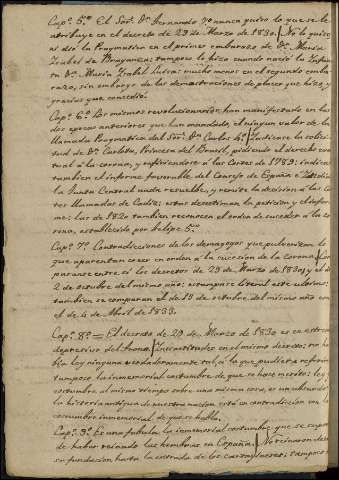 Cap.º 5.º El Sor. Dn. Fernando 7.º nunca quiso lo que se le
atribuye en el decreto de 29 de Marzo de 1830. No lo quiso
ni dió la Pragmatica en el primer embarazo de Dª. Maria
Isabel de Braganza: tampoco lo hizo cuando nació la Infan
ta Dª. Maria Isabel Luisa: mucho menos en el segundo emba
razo, sin embargo de las demostraciones de placer que hizo y
gracias que concedió.
Cap.º 6.º Los mismos revolucionarios han manifestado en las
dos epocas anteriores que han mandado, el ningun valor de la
llamada Pragmatica del Sor. Dn. Carlos 4.º Indicase la solici
tud de Dª. Carlota, Princesa del Brasil, pidiendo el derecho even
tual á la corona, y refiriendose á las Cortes de 1789: indicase
tambien el informe favorable del Consejo de España é Indias
la Junta Central nada resuelve, y remite la decision á las Cor
tes llamadas de Cadiz: estas desestiman la peticion y el infor
me: las de 1820 tambien reconocen el orden de suceder á la co
rona, establecido por Felipe 5.º
Cap.º 7.º Contradicciones de los demagogos que pulverizan lo
que aparentan creer en orden á la sucesion de la corona. Com
paranse entre si los decretos de 29 de Marzo de 1830, y el de
2 de octubre del mismo año: estampase literal este ultimo;
tambien se comparan el de 13 de octubre del mismo año con
el de 4 de Abril de 1833.
Cap.º 8.º El decreto de 29 de Marzo de 1830 es en estremo
depresivo del trono. Inexactitudes en el mismo decreto: no ha
bia ley ninguna verdaderamente tal, á la que pudiera referirse
tampoco la inmemorial costumbre de que se hace merito: ley y
costumbre al mismo tiempo sobre una misma cosa, es un absurdo
la historia antigua de nuestra nacion está en contradiccion con la
costumbre inmemorial de que se habla.
Cap.º 9.º Es una fabula la inmemorial costumbre que se supone
de haber reinado las hembras en España. No reinaron desde
su fundacion hasta la entrada de los cartagineses; tampoco